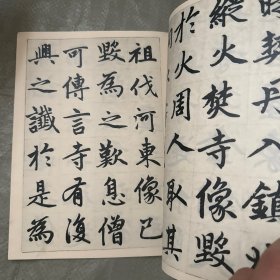 時契丹入鎮
縱火焚寺像毀
於火周人取其
祖伐河東像已
毀為之歎息僧
可傳言寺有復
興之讖於是為